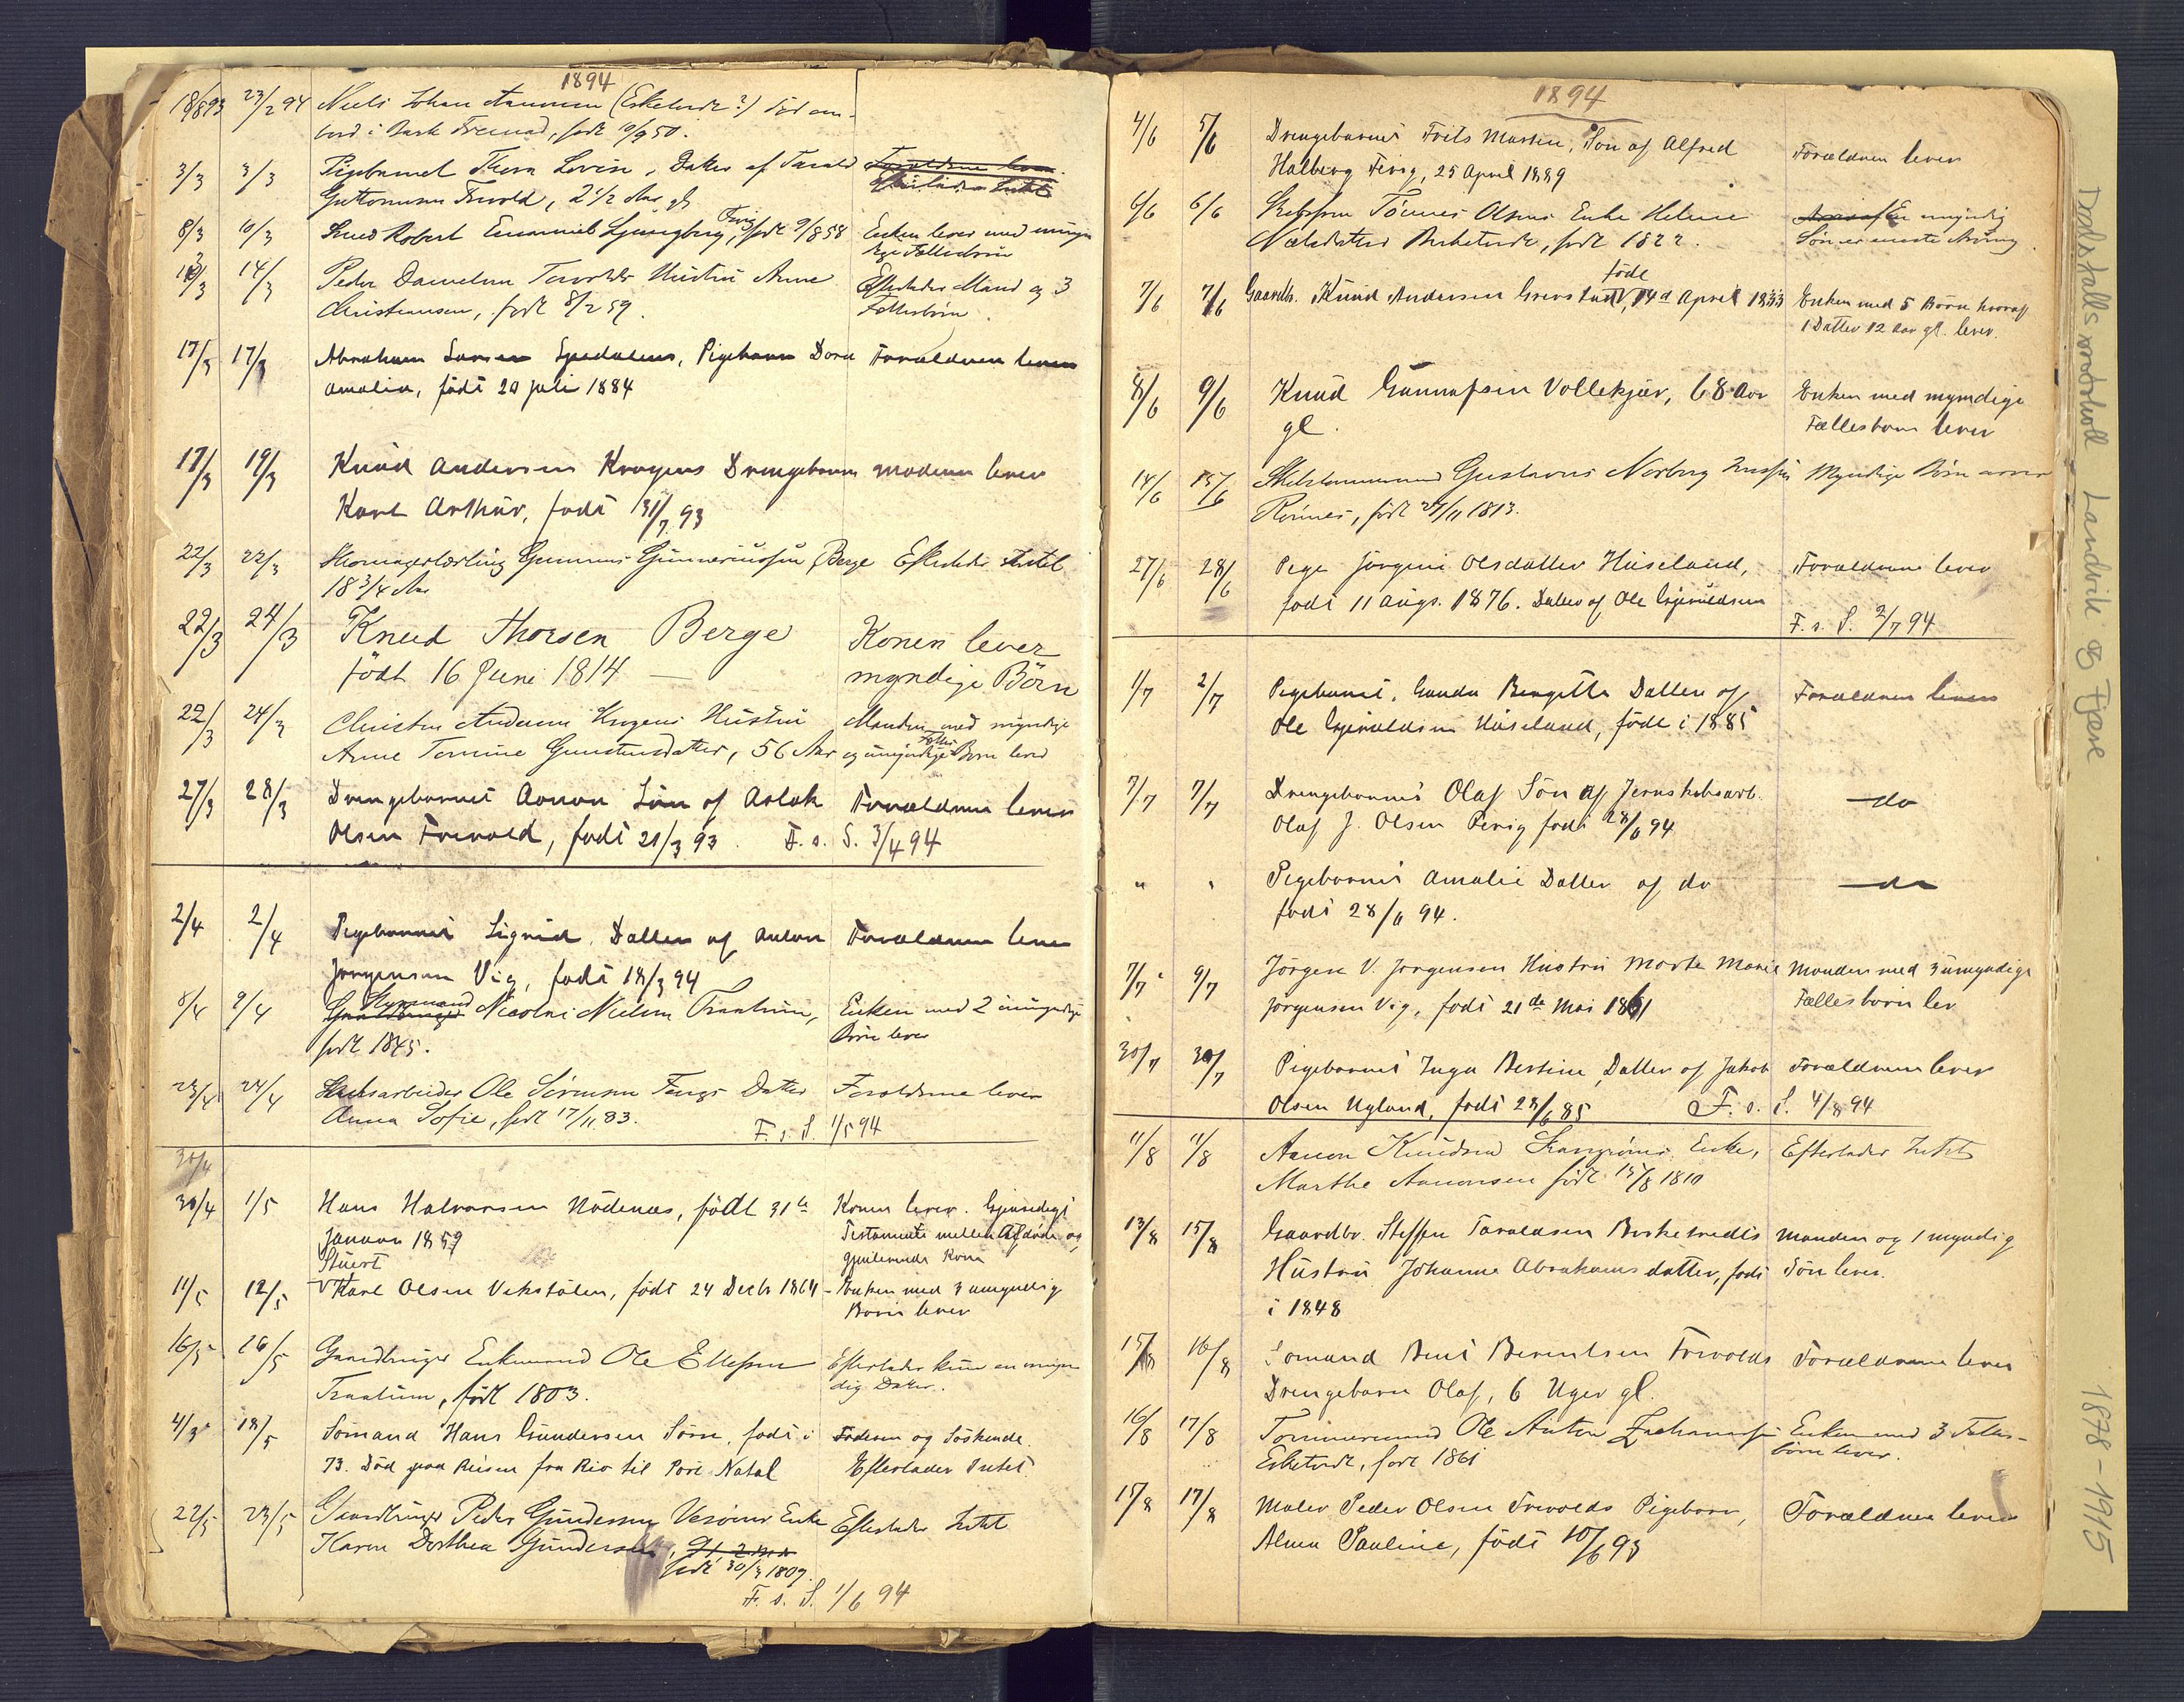 1894
18/8 93 23/2 94 Niels Johan Aanonsen (Eskeland?) död om-
bord i Bark Fremad, född 10/9 50.
3/3 3/3 Pigebarnet Thora Lovise, Datter af Tarald Forældrene lever.
Guttormsen Frivold, 2 1/2 Aar gl. Efterlader Intet
8/3 10/3 Robert Emanuel Ljungberg, Fevig, født 9/8 58 Enken lever med umyn-
dige Fællesbørn
13/3 14/3 Peder Danielsen Hustru Anne Efterlader Mand og 3
Christiansen, født 8/2 59. Fællesbörn.
17/3 17/3 Abraham Larsen Spedalens, Pigebarn Dora Forældrene lever
Amalia, födt 20 juli 1884
17/3 19/3 Knud Andersen Krogens Drengebarn moderen lever
Karl Arthur, födt 31/7 93
22/3 22/3 Skomagerlærling Gunnerius Gunneriussen, Berge Efterlader Intet
18 3/4 Aar
22/3 24/3 Knud Thorsen Berge Konen lever
födt 16 Juni 1814 — myndige Börn
22/3 24/3 Christen Andersen Krogens Hustru Manden med myndige
Anne Tomine Gunstensdatter, 56 Aar og umyndige Fælles Børn lever
27/3 28/3 Drengebarnet Aanon Sön af Aslak Forældrene lever
Olsen Frivold, födt 21/3 93. F. s. S. 3/4 94
2/4 2/4 Pigebarnet Sigrid, Datter af Anton Forældrene lever
Jorgensen Vig, födt 18/3 94
8/4 9/4 Styrmand Nicolai Nielsen Trælum, Enken med 2 umyndige
født 1845. Börn lever
23/4 24/4 Skibsarbeider Ole Sörensen Fevigs Datter Forældrene lever
Anna Sofie, født 17/11 83. F. s. S. 1/5 94
30/4
30/4 1/5 Hans Halvorsen Nödenæs, födt 31te Konen lever. Gjensidigt
Januar 1859 Testamente mellem Afdøde og
Stuert gjenlevende Kone
11/5 12/5 Karl Olsen Vikstölen, födt 24 Decbr 1864 - Enken med 3 umyndig
Börn lever
16/5 26/5 Gaardbruger Enkemand Ole Ellefsen Efterlader kun en myn-
Trælum, födt 1803. dig Datter.
4/3 18/5 Sömand Hans Gundersen Sörn, födt i Faderen og Söskende.
73. Död paa Reisen fra Rio til Port Natal Efterlader Intet
22/5 23/5 Gaardbruger Peder Gundersen Enke Efterlader Intet
Karen Dorthea Gundersen,
født 30/3 1809.
F. s. S. 1/6 94
1894
4/6 5/6 Drengebarnet Frits Martin, Sön af Alfred Forældrene lever
Halberg Fevig, 25 April 1889
6/6 6/6 Tönnes Olsens Enke Helene myndig
Nielsdatter, født 1822. Sön er eneste Arving.
7/6 7/6 Gaardb. Knud Andersen Grevstad, födt 14d April 1833 Enken med 5 Börn hvoraf
1 Datter 12 Aar gl. lever.
8/6 9/6 Knud Gunnufsen Vollekjær, 68 Aar Enken med myndige
gl. Fællesbørn lever
14/6 15/6 Skibstømmermand Gustavus Norberg Myndige Börn
Rönnes, födt 29/11 1813.
27/6 28/6 Pige Jörgine Olsdatter Huseland, Forældrene lever
födt 11 Augs. 1876. Datter af Ole Gjeruldsen F. s. S. 2/7 94
1/7 2/7 Pigebarnet, Gunda Bergitte Datter af Forældrene lever
Ole Gjeruldsen Huseland, födt i 1885
7/7 7/7 Drengebarnet Olaf Sön af Jernskibsarb. —do
Olaf J. Olsen Fevig födt 28/6 94
" " Pigebarnet Amalie Datter af do —do
födt 28/6 94.
7/7 9/7 Jörgen V. Jorgensen Hustru Marte Marie Manden med 3 umyndige
Jorgensen Vig, födt 21de Mai 1861 Fællesbörn lev
30/7 30/7 Pigebarnet Inga Bertine, Datter af Jakob Forældrene lever
Olsen Ugland, födt 28/6 85 F. s. S. 4/8 94
11/8 11/8 Aanon Knudsen Enke, Efterlader Intet
Marthe Aanonsen födt 15/8 1810
13/8 15/8 Gaardbr. Steffen Taraldsen Birketvedts Manden og 1 myndig
Hustru Johanne Abrahamsdatter, födt Sön lever.
i 1848
15/8 16/8 Sömand Berntsen Frivolds Forældrene lever
Drengebarn Olaf, 6 Uger gl.
16/8 17/8 Tömmermand Ole Anton Zachariassen Enken med 3 Fælles-
født 1861 börn lever.
15/8 17/8 Maler Peder Olsen Frivolds Pigebarn, Forældrene lever
Alma Pauline, födt 10/6 93
Dødsfallsprotokoll Landvik og Fjære 1878-1915